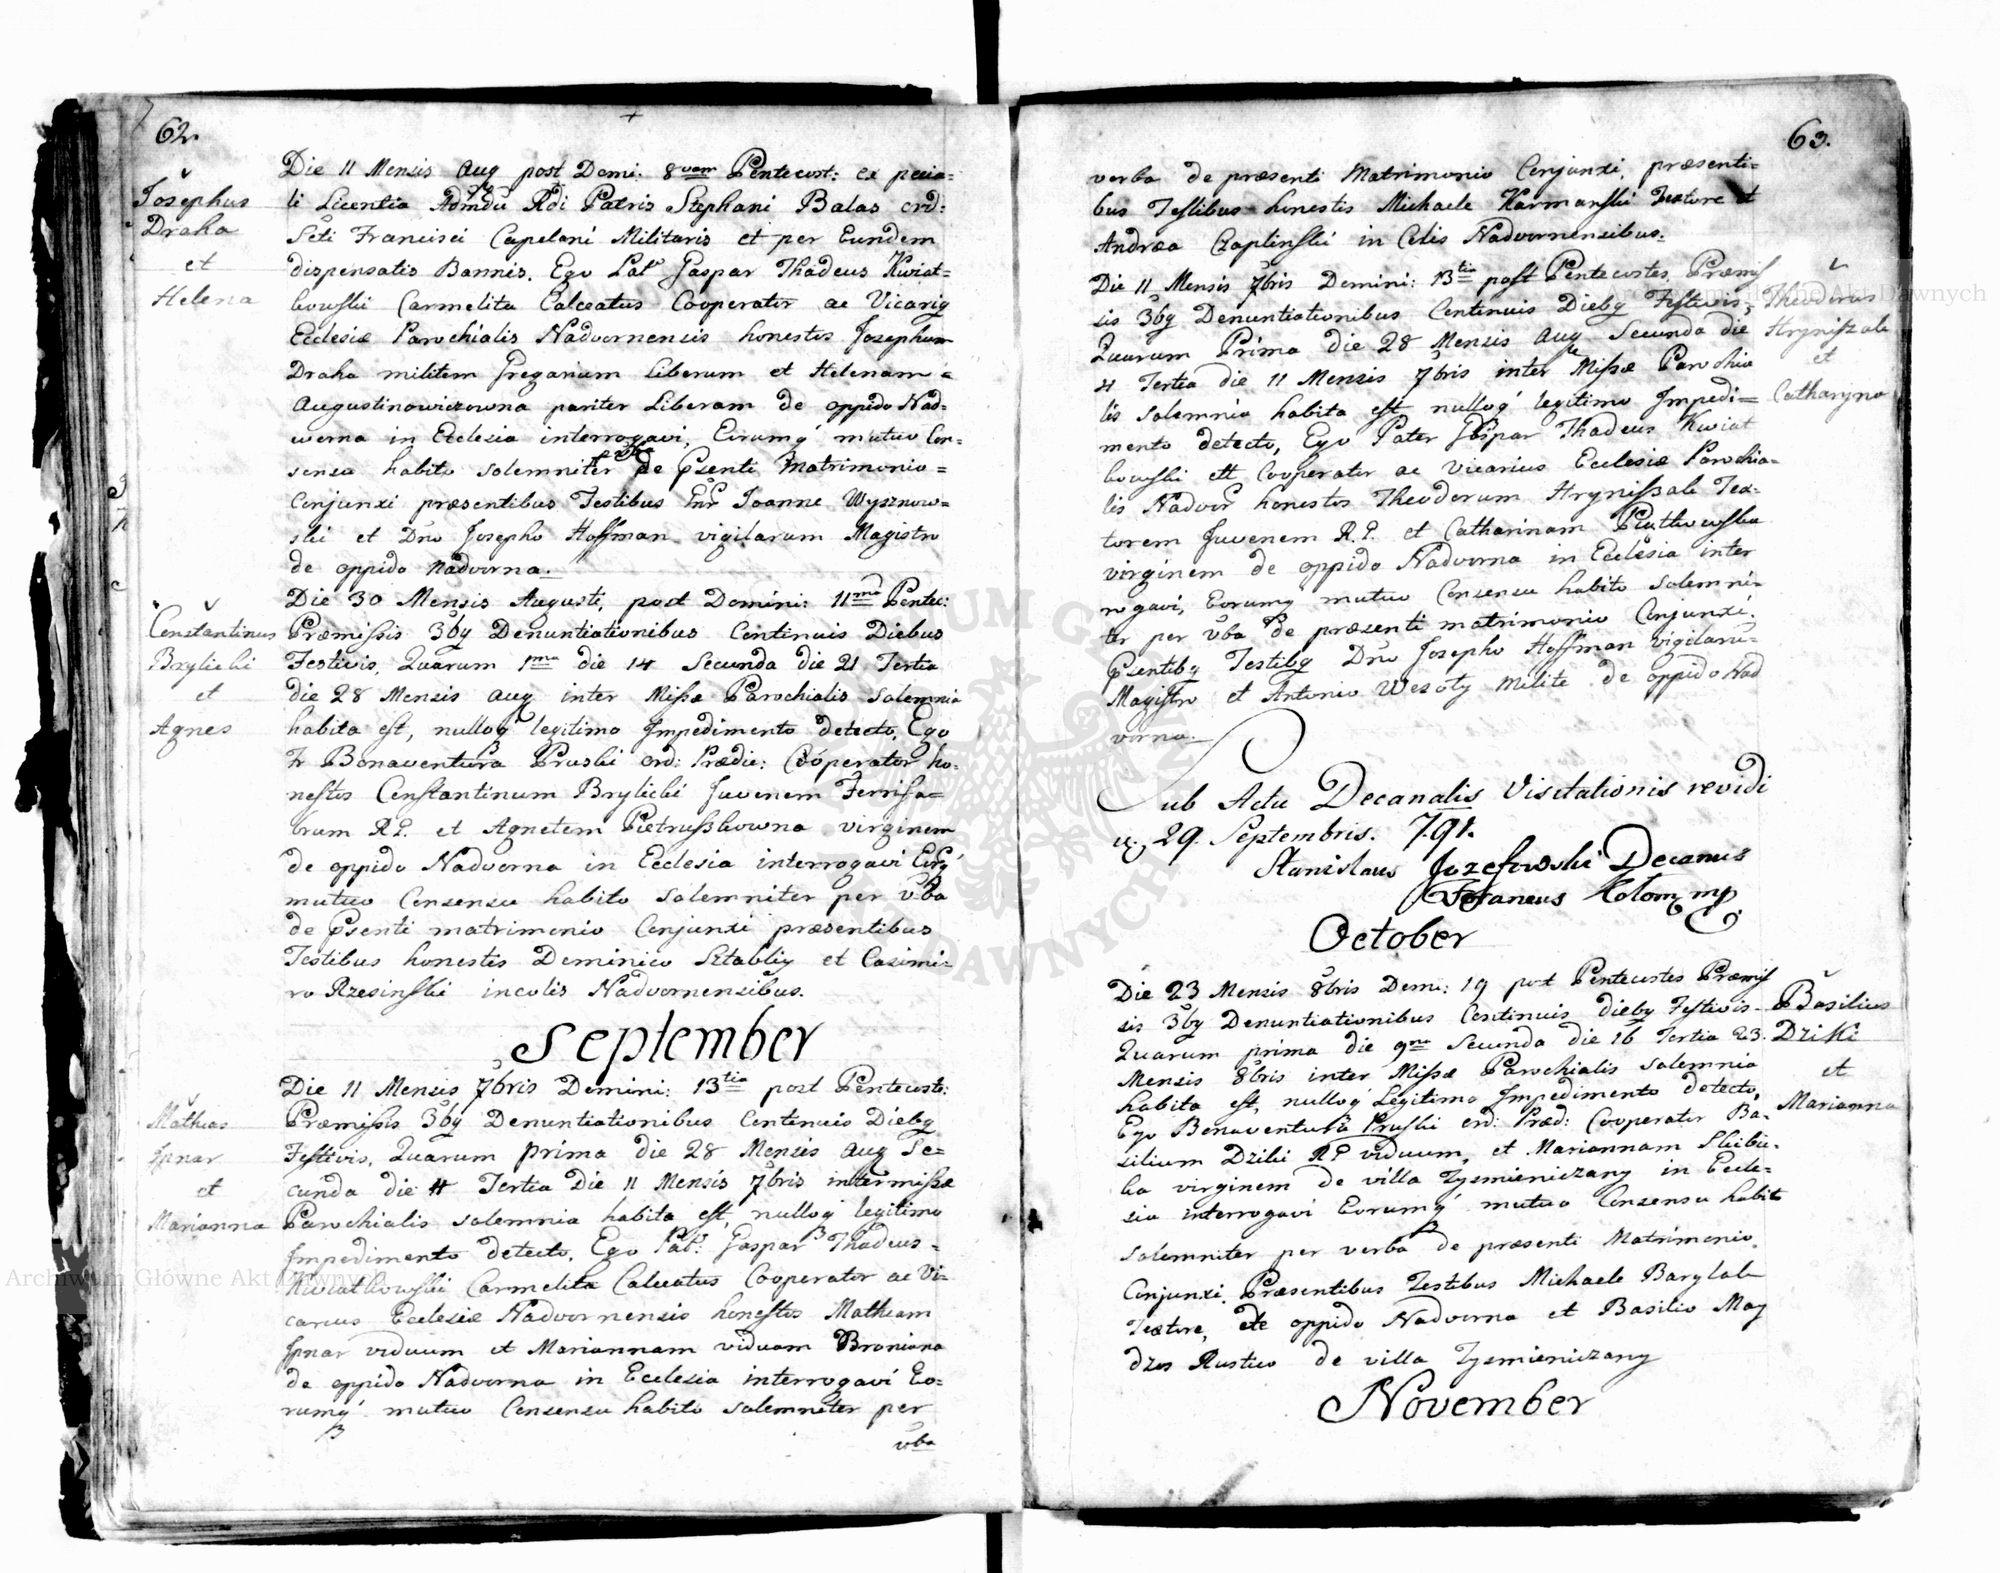 62.
Josephus
Draha
et
Helena
Die 11 Mensis Aug post Domi: 8vam Pentecost: ex pecia=
li Licentia Admdu Rdi Patris Stephani Balas ord:
Scti Francisci Capelani Militaris et per Eundem
dispensatis Bannis. Ego Patr Gaspar Thadeus Kwiat=
kowski Carmelita Calceatus Cooperator ac Vicariq
Ecclesiæ Parochialis Nadvornensis honestos Josephum
Draha militem Gregarium Liberum et Helenam =
Augustinowiczowna pariter Liberam de oppido Nad=
worna in Ecclesia interrogavi, Eorumq mutuo Con=
sensu habito solemniter verba de Psenti Matrimonio =
Conjunxi præsentibus Testibus Joanne Wysznow=
ski et Dno Josepho Hoffman vigilarum Magistro
de oppido Nadvorna.
Constantinus
Brylicki
et
Agnes
Die 30 Mensis Augusti, post Domini: 11mā Pente:
Præmissis 3bq Denuntiationibus Continuis Diebus
Festivis, Quarum 1ma die 14 Secunda die 21 Tertia
die 28 Mensis Aug inter Missæ Parochialis Solemnia
habita est, nulloq legitimo Impedimento detecto, Ego
Fr Bonaventura Pruski ord: Prædic: Cooperator ho=
nestos Constantinum Brylicki Juvenem Ferrifa=
brum R.P. et Agnetem Pietruszkowna virginem
de oppido Nadvorna in Ecclesia interrogavi Eorq
mutuo Consensu habito solemniter per vba
de Psenti matrimonio Conjunxi præsentibus
Testibus honestis Dominico Sztabliy et Casimi=
ro Rzesinski incolis Nadvornensibus.
September
Mathias
Jpnar
et
Marianna
Die 11 Mensis 7bris Domini: 13tia post Pentecost:
Præmissis 3bq Denuntiationibus Continuis Diebq
Festivis, Quarum prima die 28 Mensis Aug Se=
cunda die 4 Tertia Die 11 Mensis 7bris inter missæ
Parochialis solemnia habita est, nulloq legitimo
Impedimento detecto, Ego Patr: Gaspar Thadeus =
Kwiatkowski Carmelita Calceatus Cooperator ac Vi=
carius Ecclesiæ Nadvornensis honestos Mathiam
Jpnar viduum et Mariannam viduam Broniana
de oppido Nadvorna in Ecclesia interrogavi Eo=
rumq mutuo Consensu habito solemniter per
vba
63.
verba de præsenti Matrimonio Conjunxi, præsenti=
bus Testibus honestis Michaele Karmanski Textore et
Andræa Czaplinski in Colis Nadvornensibus.
Theodorus
Hryniszak
et
Catharyna
Die 11 Mensis 7bris Domini: 13tia post Pentecostes Præmis
sis 3bq Denuntiationibus Continuis Diebq Festivis,
Quarum Prima die 28 Mensis Aug Secunda die
4 Tertia die 11 Mensis 7bris inter Missæ Parochia
lis solemnia habita est nulloq legitimo Impedi=
mento detecto, Ego Pater Gaspar Thadeus Kwiat
kowski ett Cooperator ac Vicarius Ecclesiæ Parochia=
lis Nadvor honestos Theodorum Hryniszak Tex=
torem Juvenem R.P. et Catharinam Piutkowska
virginem de oppido Nadvorna in Ecclesia inter
rogavi, Eorumq mutuo Consensu habito solemni=
ter per vba de præsenti matrimonio Conjunxi.
Psentibq Testibq Dno Josepho Hoffman vigilaru=
Magistro et Antonio Wesoły Milite de oppido Nad
vorna.
Sub Actu Decanalis Visitationis revidi
29. Septembris. 791.
Stanislaus Jozefowski Decanus
Foraneus Kolom mp
October
Basilius
Dziki
et
Marianna
Die 23 Mensis 8bris Domi: 19 post Pentecostes Præmis
sis 3bq Denuntiationibus Continuis diebq Festivis
Quarum prima die 9na Secunda die 16 Tertia 23.
Mensis 8bris inter Missæ Parochialis solemnia
habita est, nulloq Legitimo Impedimento detecto,
Ego Bonaventura Pruski ord: Præd: Cooperator Ba=
silium Dziki RP viduum, et Mariannam Skibic=
ka virginem de villa Tysmieniczany in Eccle=
sia interrogavi Eorumq mutuo Consensu habito
solemniter per verba de præsenti Matrimonio
Conjunxi, Præsentibus Testibus Michaele Barylak
Textore, de oppido Nadvorna et Basilio May
dzes Rustico de villa Tysmieniczany
November
Archiwum Główne Akt Dawnych
Archiwum Główne Akt Dawnych